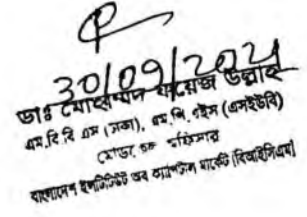 30/09/2021
ডাঃ মোহাম্মদ ফয়েজ উল্লাহ
এম.বি.বি.এস (ঢাকা), এম.পি.এইস (এসইউবি)
বাংলাদেশ ইনস্টিটিউট অব ক্যাপিটাল মার্কেট (বিআইসিএম)